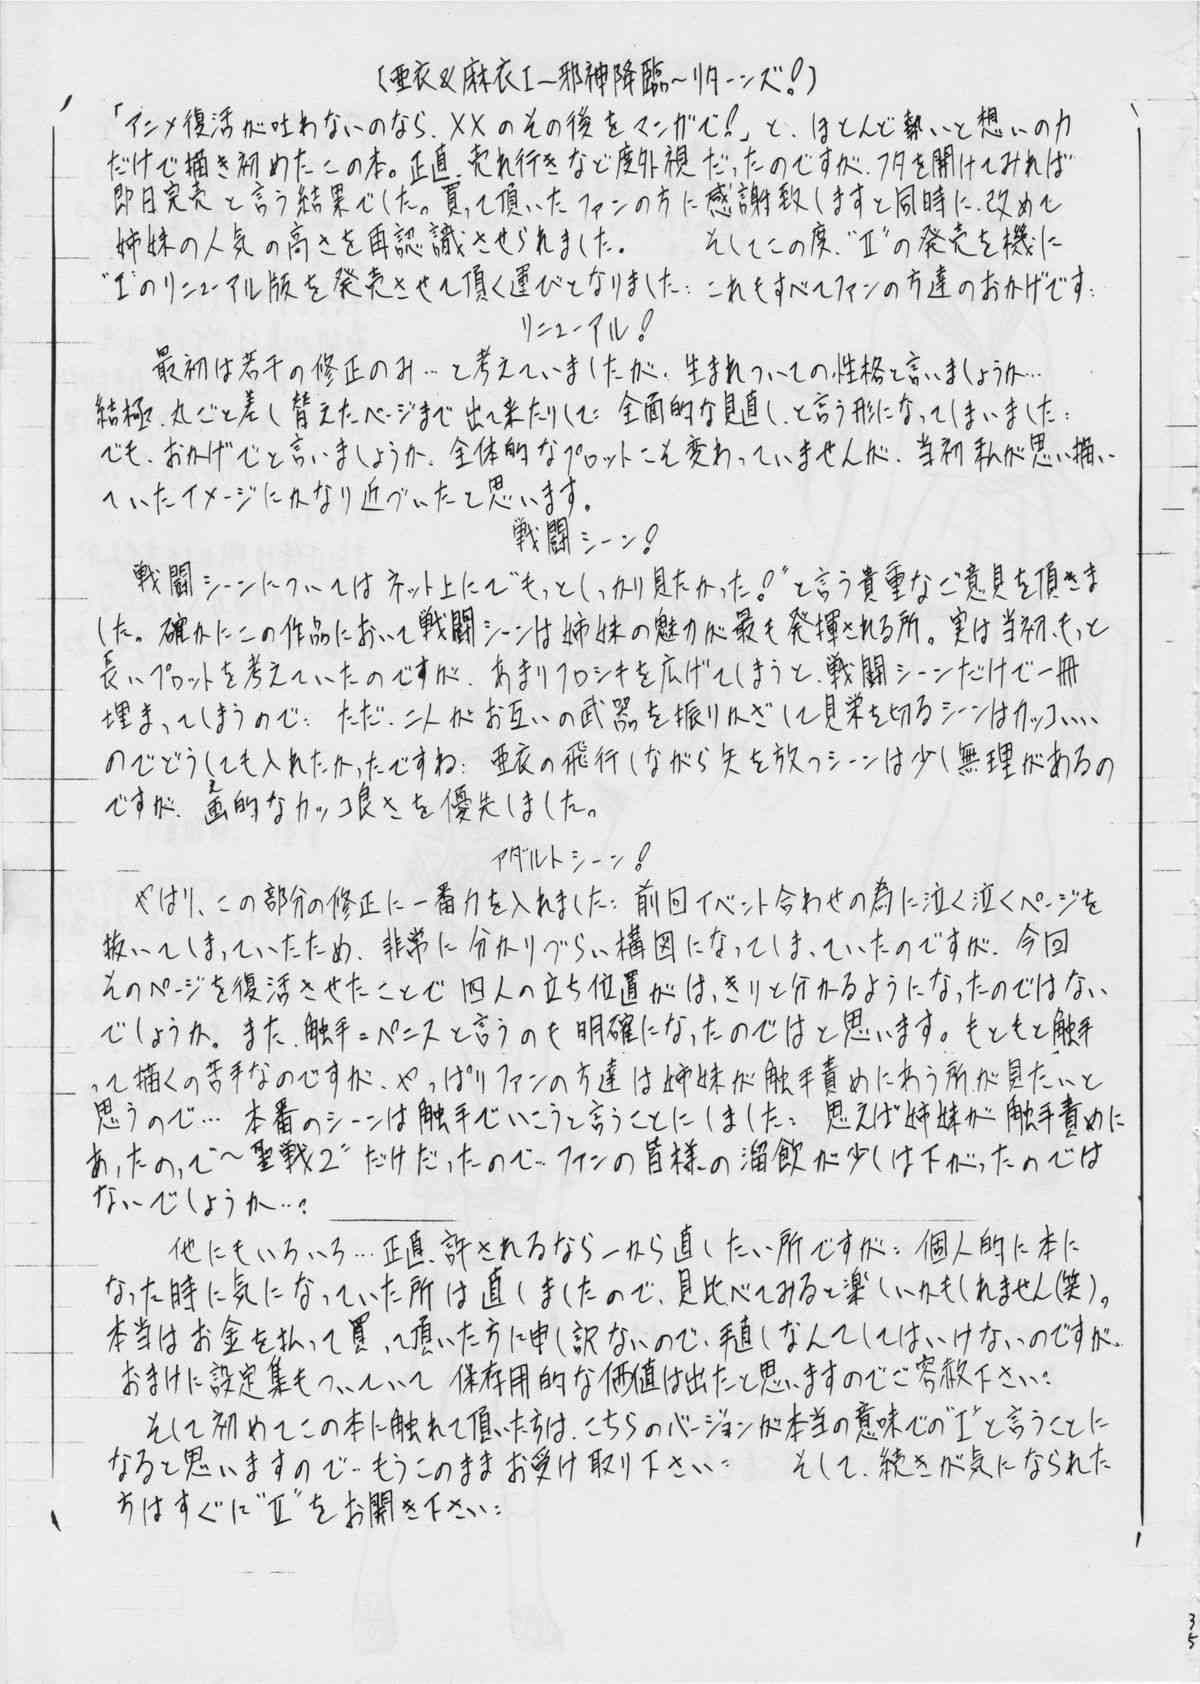 (亜衣&麻衣Ⅰ～邪神降臨～リターンズ!)
「アニメ復活が叶わないのなら、XXのその後をマンガで!」と、ほとんど勢いと想いの力
だけで描き初めたこの本。正直、売れ行きなど度外視だったのですが、フタを開けてみれば
即日完売と言う結果でした。買って頂いたファンの方に感謝致しますと同時に、改めて
姉妹の人気の高さを再認識させられました。 そしてこの度、“Ⅱ”の発売を機に
“Ⅰ”のリニューアル版を発売させて頂く運びとなりました… これもすべてファンの方達のおかげです…
リニューアル!
最初は若干の修正のみ…と考えていましたが、生まれついての性格と言いましょうか…
結極、丸ごと差し替えたページまで出て来たりして… 全面的な見直し、と言う形になってしまいました…
でも、おかげでと言いましょうか、全体的なプロットこそ変わっていませんが、当初私が思い描い
ていたイメージにかなり近づいたと思います。
戦闘シーン!
戦闘シーンについてはネット上にて“もっとしっかり見たかった!”と言う貴重なご意見を頂きま
した。確かにこの作品において戦闘シーンは姉妹の魅力が最も発揮される所。実は当初、もっと
長いプロットを考えていたのですが、あまりフロシキを広げてしまうと、戦闘シーンだけで一冊
埋まってしまうので… ただ、二人がお互いの武器を振りかざして見栄を切るシーンはカッコいい
のでどうしても入れたかったですね… 亜衣の飛行しながら矢を放つシーンは少し無理があるの
ですが、画的なカッコ良さを優先しました。
え
アダルトシーン!
やはり、この部分の修正に一番力を入れました… 前回イベント合わせの為に泣く泣くページを
抜いてしまっていたため、非常に分かりづらい構図になってしまっていたのですが、今回
そのページを復活させたことで四人の立ち位置がはっきりと分かるようになったのではない
でしょうか。また、触手=ペニスと言うのも明確になったのではと思います。もともと触手
って描くの苦手なのですが、やっぱりファンの方達は姉妹が触手責めにあう所が見たいと
思うので… 本番のシーンは触手でいこうと言うことにしました… 思えば姉妹が触手責めに
あったのって“～聖戦2”だけだったので…ファンの皆様の溜飲が少しは下がったのでは
ないでしょうか…?
他にもいろいろ…正直、許されるなら一から直したい所ですが… 個人的に本に
なった時に気になっていた所は直しましたので、見比べてみると楽しいかもしれません(笑)。
本当はお金を払って買って頂いた方に申し訳ないので、手直しなんてしてはいけないのですが、
おまけに設定集もついていて 保存用的な価値は出たと思いますのでご容赦下さい…
そして初めてこの本に触れて頂いた方は、こちらのバージョンが本当の意味での“Ⅰ”と言うことに
なると思いますので…もうこのままお受け取り下さい… そして、続きが気になられた
方はすぐに“Ⅱ”をお開き下さい…
35